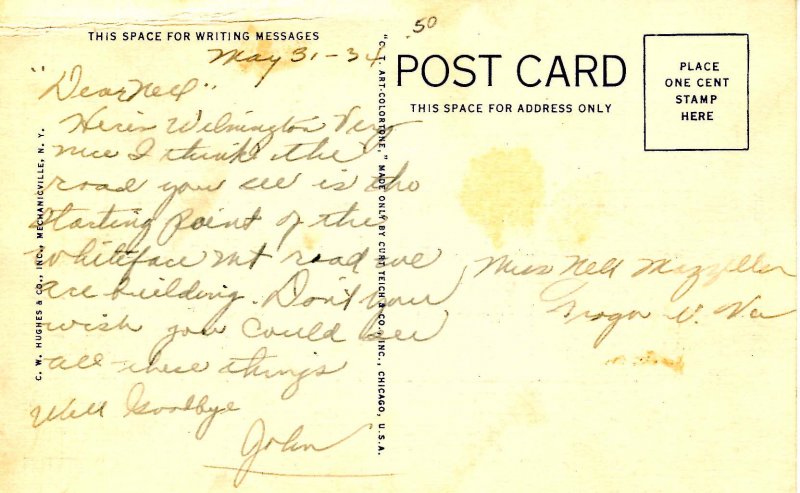 THIS SPACE FOR WRITING MESSAGES
May 31-34
"Dear Nell"
Here's Wilmington Very
nice I think the
road you see is the
starting point of the
whiteface Mt road we
are building. Don't you
wish you could see
all these things
Well Goodbye
John
C. W. HUGHES & CO., INC., MECHANICVILLE, N. Y.
"C. T. ART-COLORTONE," MADE ONLY BY CURT TEICH & CO., INC., CHICAGO, U.S.A.
.50
POST CARD
THIS SPACE FOR ADDRESS ONLY
PLACE
ONE CENT
STAMP
HERE
Miss Nell